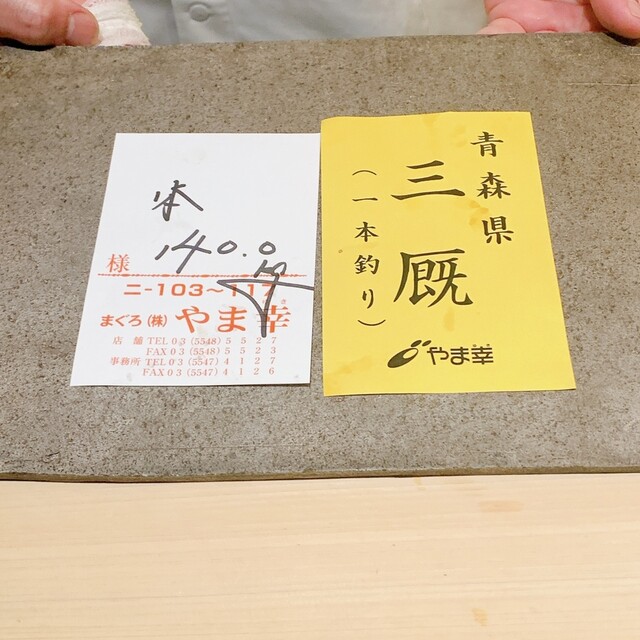 本
140.0
様
ニ-103~117
まぐろ(株)やま幸
さ
店舗 TEL 03(5548)5527
FAX 03(5548)5523
事務所 TEL 03(5547)4127
FAX 03(5547)4126
青森県
三厩
(一本釣り)
やま幸